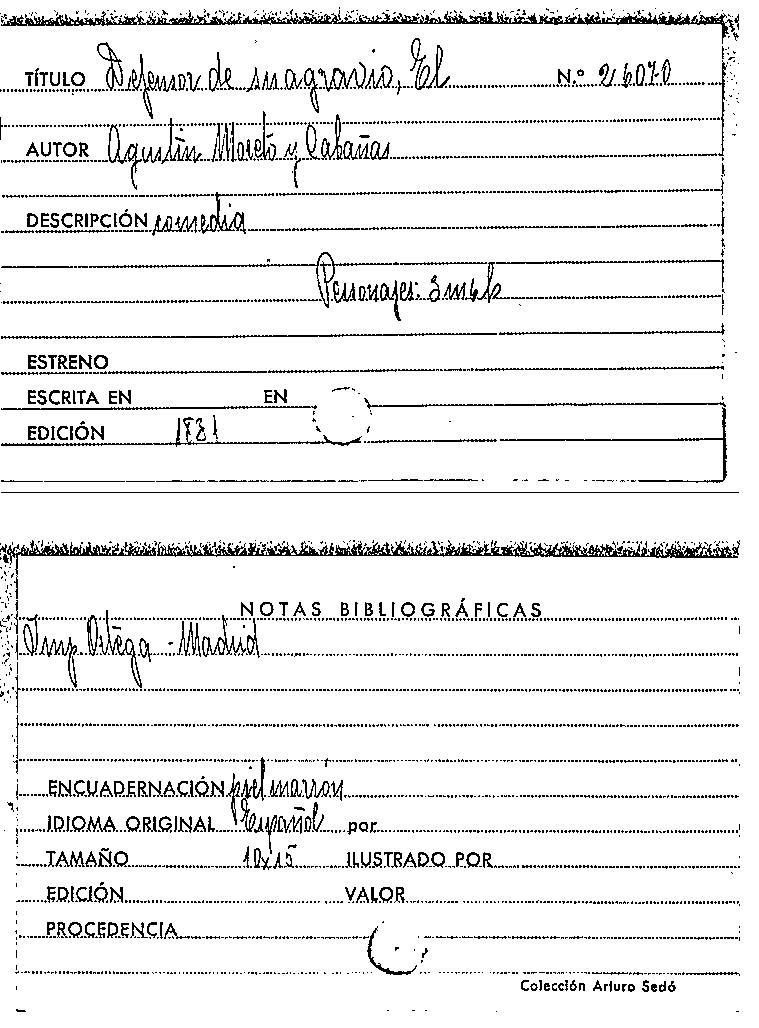 TÍTULO Defensor de su agravio, El N.º 26070
AUTOR Agustín Moreto y Cabañas
DESCRIPCIÓN comedia
Personajes:
ESTRENO
ESCRITA EN EN
EDICIÓN 1831
NOTAS BIBLIOGRÁFICAS
Imp. Ortega - Madrid
ENCUADERNACIÓN piel marrón
IDIOMA ORIGINAL Español por
TAMAÑO 10x15 ILUSTRADO POR
EDICIÓN VALOR
PROCEDENCIA
Colección Arturo Sedó